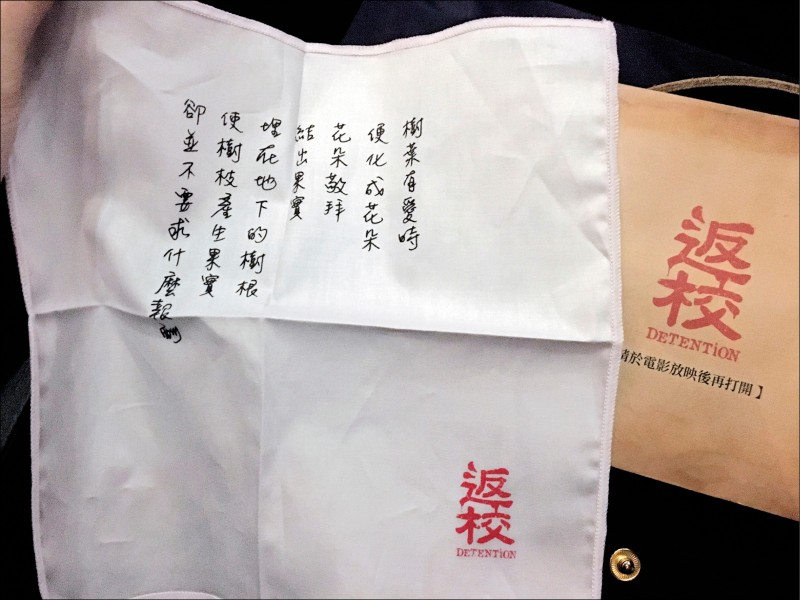 樹葉有愛時
便化成花朵
花朵敬拜
結出果實
埋在地下的樹根
使樹枝產生果實
卻並不要求什麼報酬
返校
DETENTiON
返校
DETENTiON
請於電影放映後再打開】